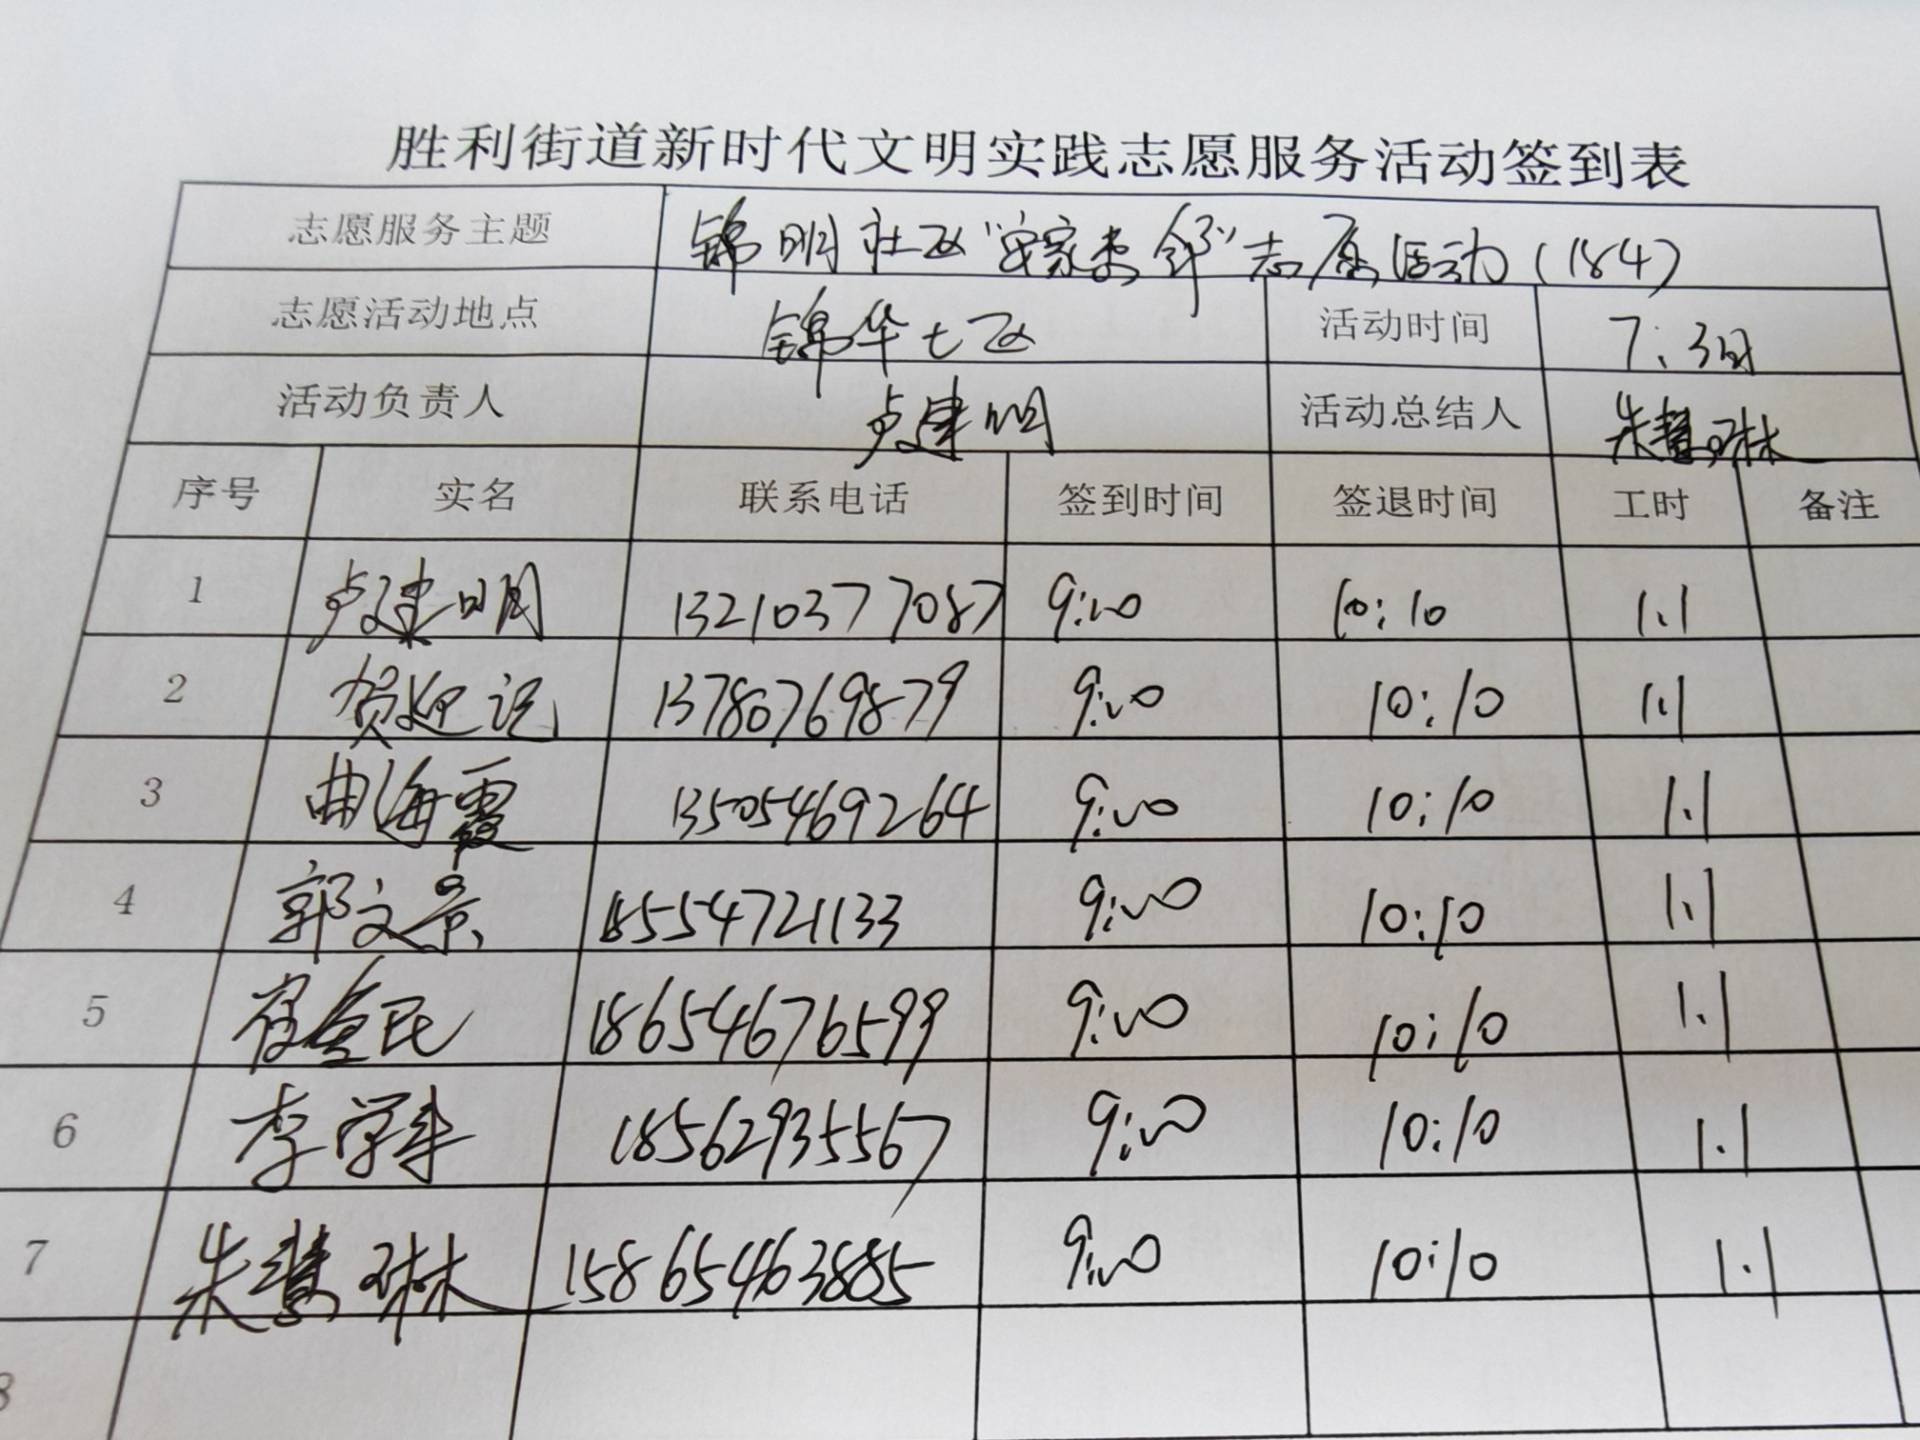 胜利街道新时代文明实践志愿服务活动签到表
志愿服务主题 锦明社区“安家李邹”志愿活动(184)
志愿活动地点 锦华七区 活动时间 7.3日
活动负责人 卢建明 活动总结人 朱慧琳
序号 实名 联系电话 签到时间 签退时间 工时 备注
1 卢建明 13210377087 9:00 10:10 1.1
2 贺延 13780769879 9:00 10:10 1.1
3 曲海霞 13505469264 9:00 10:10 1.1
4 郭文景 18554721133 9:00 10:10 1.1
5 金民 18654676599 9:00 10:10 1.1
6 李学 18562935567 9:00 10:10 1.1
7 朱慧琳 15865463885 9:00 10:10 1.1
8